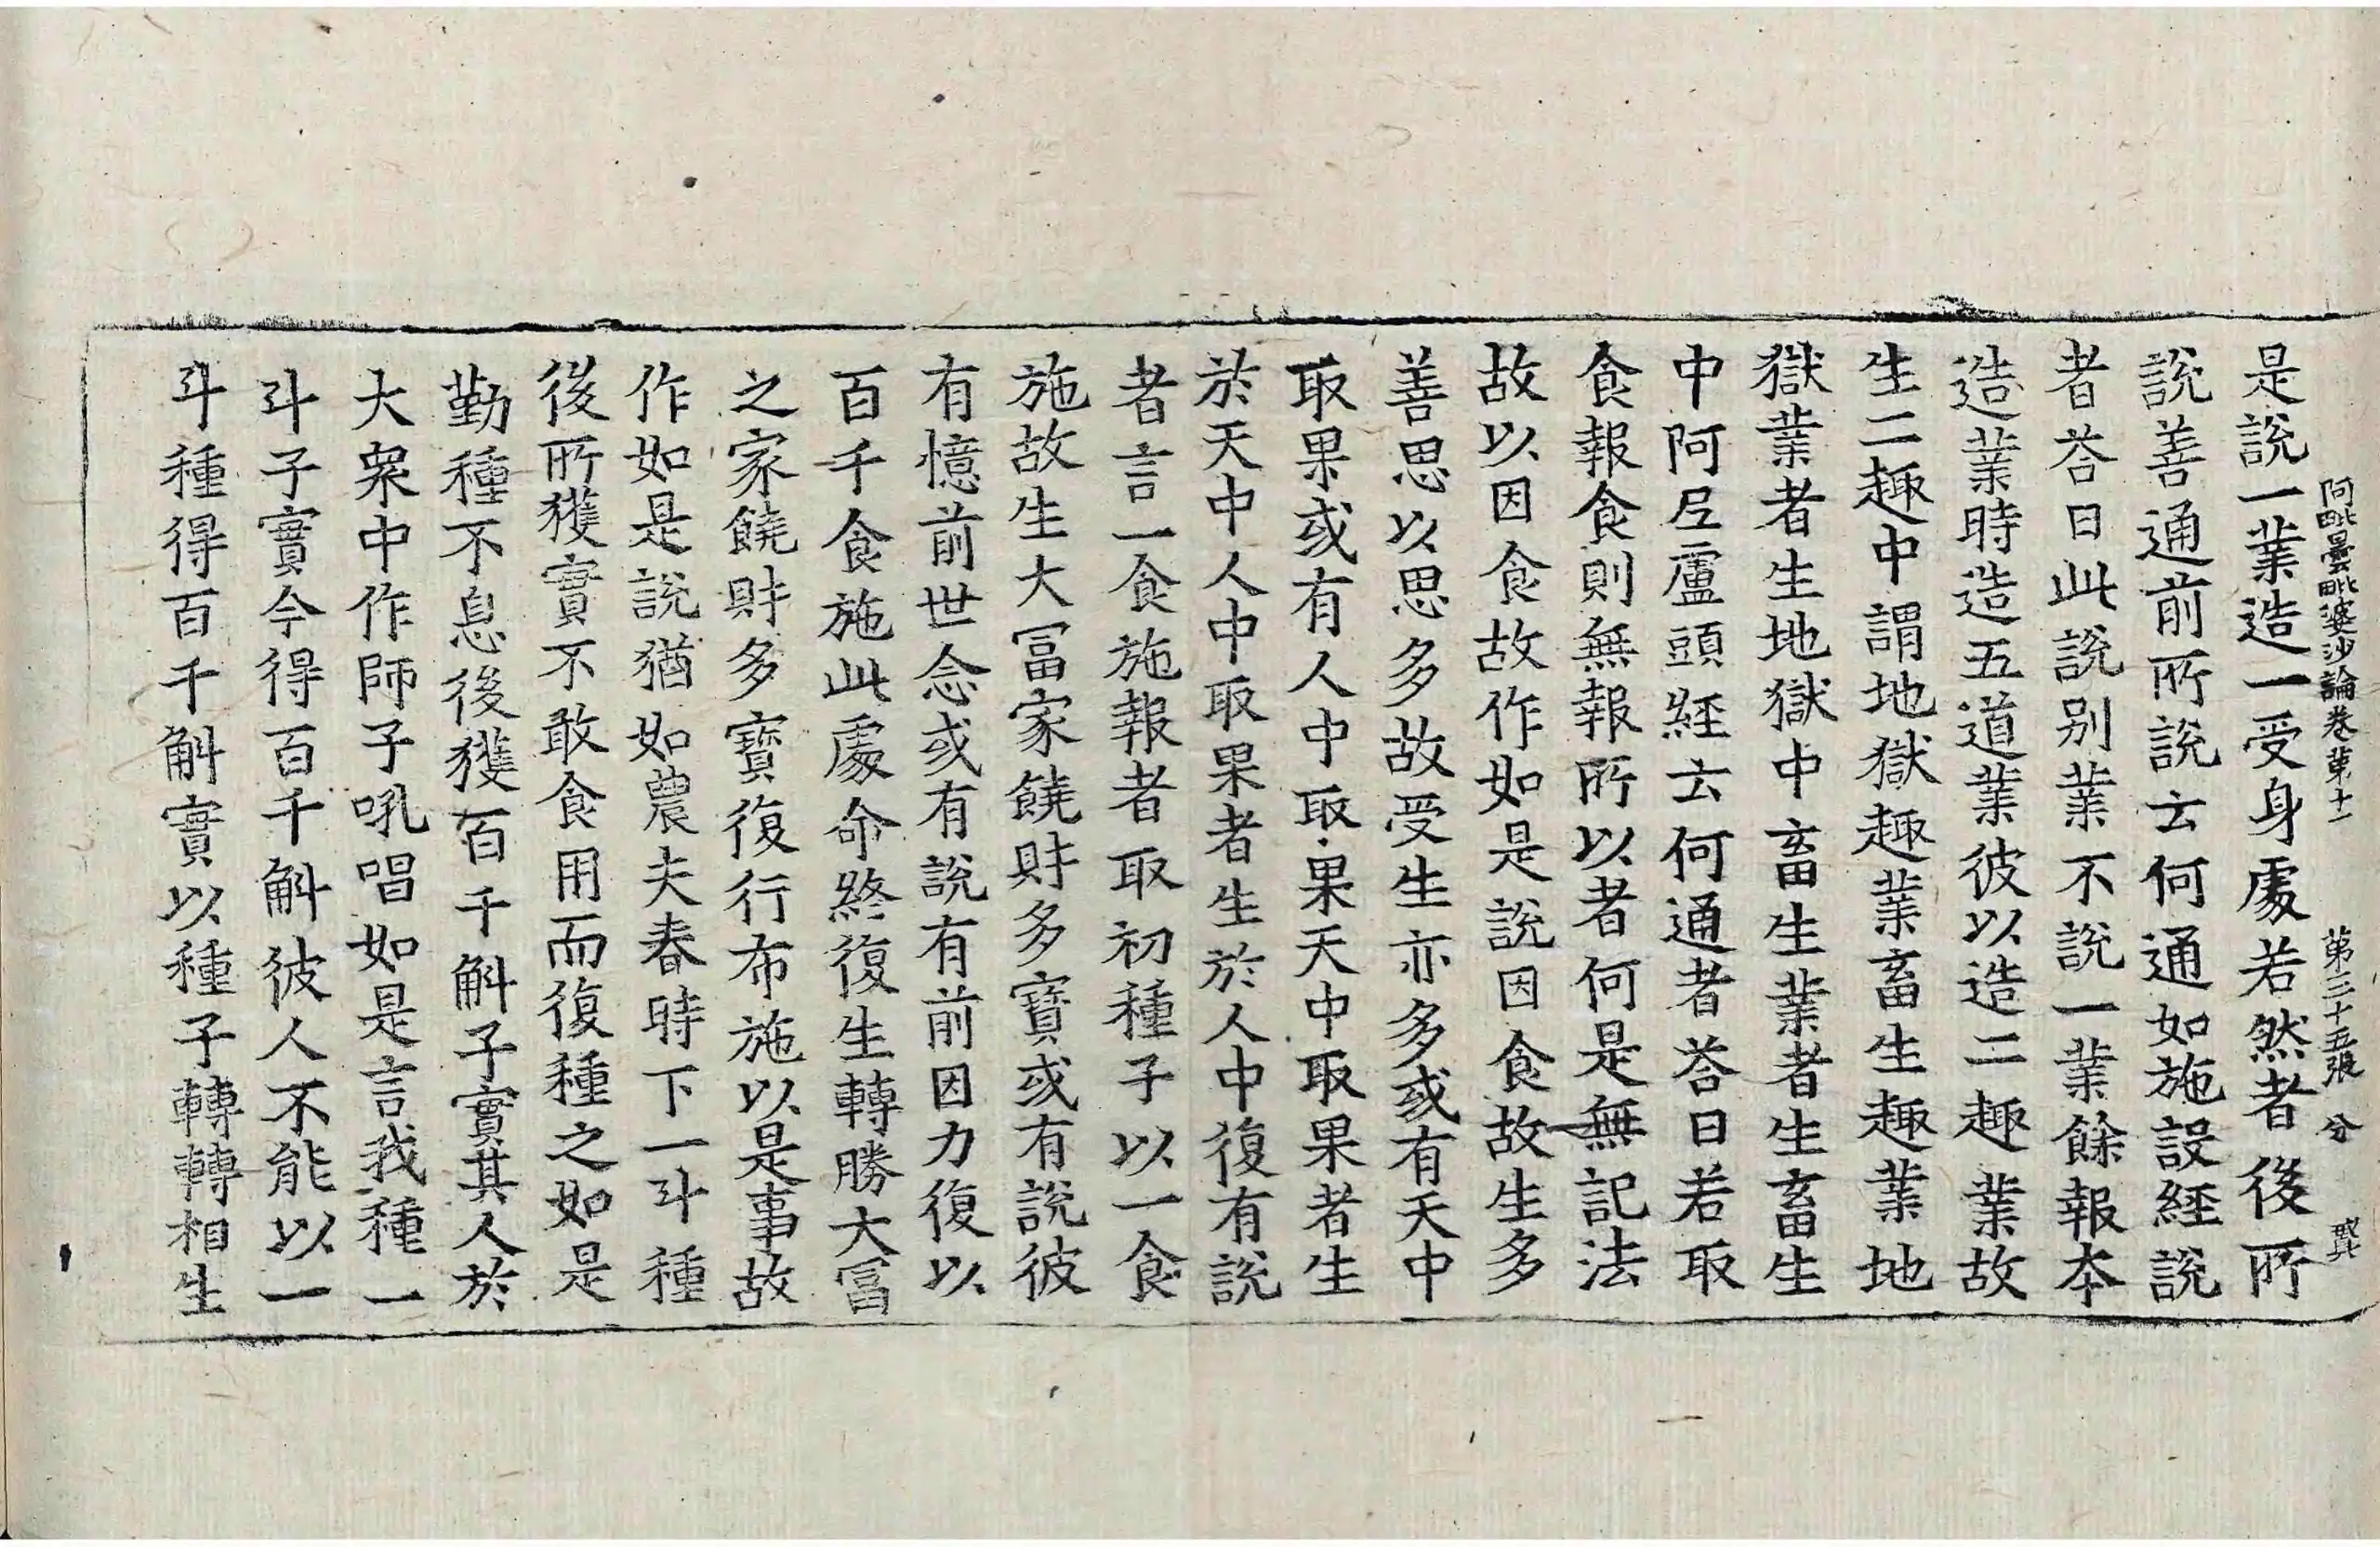 阿毗曇毗婆沙論卷苐十一　苐三十五張　分
是說一業造一受身處若然者後所
說善通前所說云何通如施設經說
者荅曰此說別業不說一業餘報本
造業時造五道業彼以造二趣業故
生二趣中謂地獄趣業畜生趣業地
獄業者生地獄中畜生業者生畜生
中阿尼盧頭經云何通者荅曰若取
食報食則無報所以者何是無記法
故以因食故作如是說因食故生多
善思以思多故受生亦多或有天中
取果或有人中取果天中取果者生
於天中人中取果者生於人中復有說
者言一食施報者取初種子以一食
施故生大冨家饒財多寶或有說彼
有憶前世念或有說有前因力復以
百千食施此處命終復生轉勝大冨
之家饒財多寶復行布施以是事故
作如是說猶如農夫春時下一斗種
後所獲實不敢食用而復種之如是
勤種不息後獲百千斛子實其人於
大衆中作師子吼唱如是言我種一
斗子實今得百千斛彼人不能以一
斗種得百千斛實以種子轉轉相生